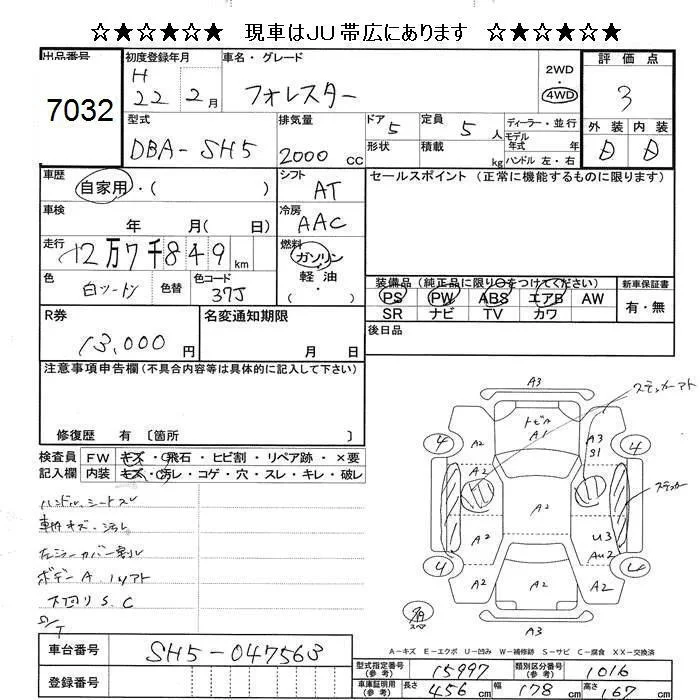 ☆★☆★☆★☆ 現車はJU帯広にあります ☆★☆★☆★☆
出品番号 7032
初度登録年月 H 22年 2月
車名・グレード フォレスター
2WD・4WD
評価点 3
型式 DBA-SH5
排気量 2000 cc
ドア 5 形状
定員 5 人 積載 kg
ディーラー・並行
モデル年式 年
ハンドル 左・右
外装 内装
車歴 自家用・( )
シフト AT
セールスポイント (正常に機能するものに限ります)
車検 年 月( 日)
冷房 AAC
走行 12万7千849 km
燃料 ガソリン 軽油 ・( )
色 白ツートン 色替
色コード 37J
装備品 (純正品に限り○をつけてください)
PS PW ABS エアB AW
SR ナビ TV カワ
新車保証書 有・無
R券 13,000円
名変通知期限 月 日
後日品
注意事項申告欄 (不具合内容等は具体的に記入して下さい)
修復歴 有 〔箇所 〕
検査員記入欄
FW キズ・飛石・ヒビ割・リペア跡・×要
内装 キズ・汚レ・コゲ・穴・スレ・キレ・破レ
ハンドル、シートスレ
ボデーA
下回りS、C
ステッカーアト
ステッカー
A3
トビA A1
A2
A3 S1
4
4
A2
A2
A2
U3 AU2
4
4
A2
A2
A2
A3
スペア
A-キズ E-エクボ U-凹み W-補修跡 S-サビ C-腐食 XX-交換済
車台番号 SH5-047563
登録番号
型式指定番号(参考) 15997
類別区分番号(参考) 1016
車庫証明用(参考) 長さ 456cm 幅 178cm 高さ 167cm